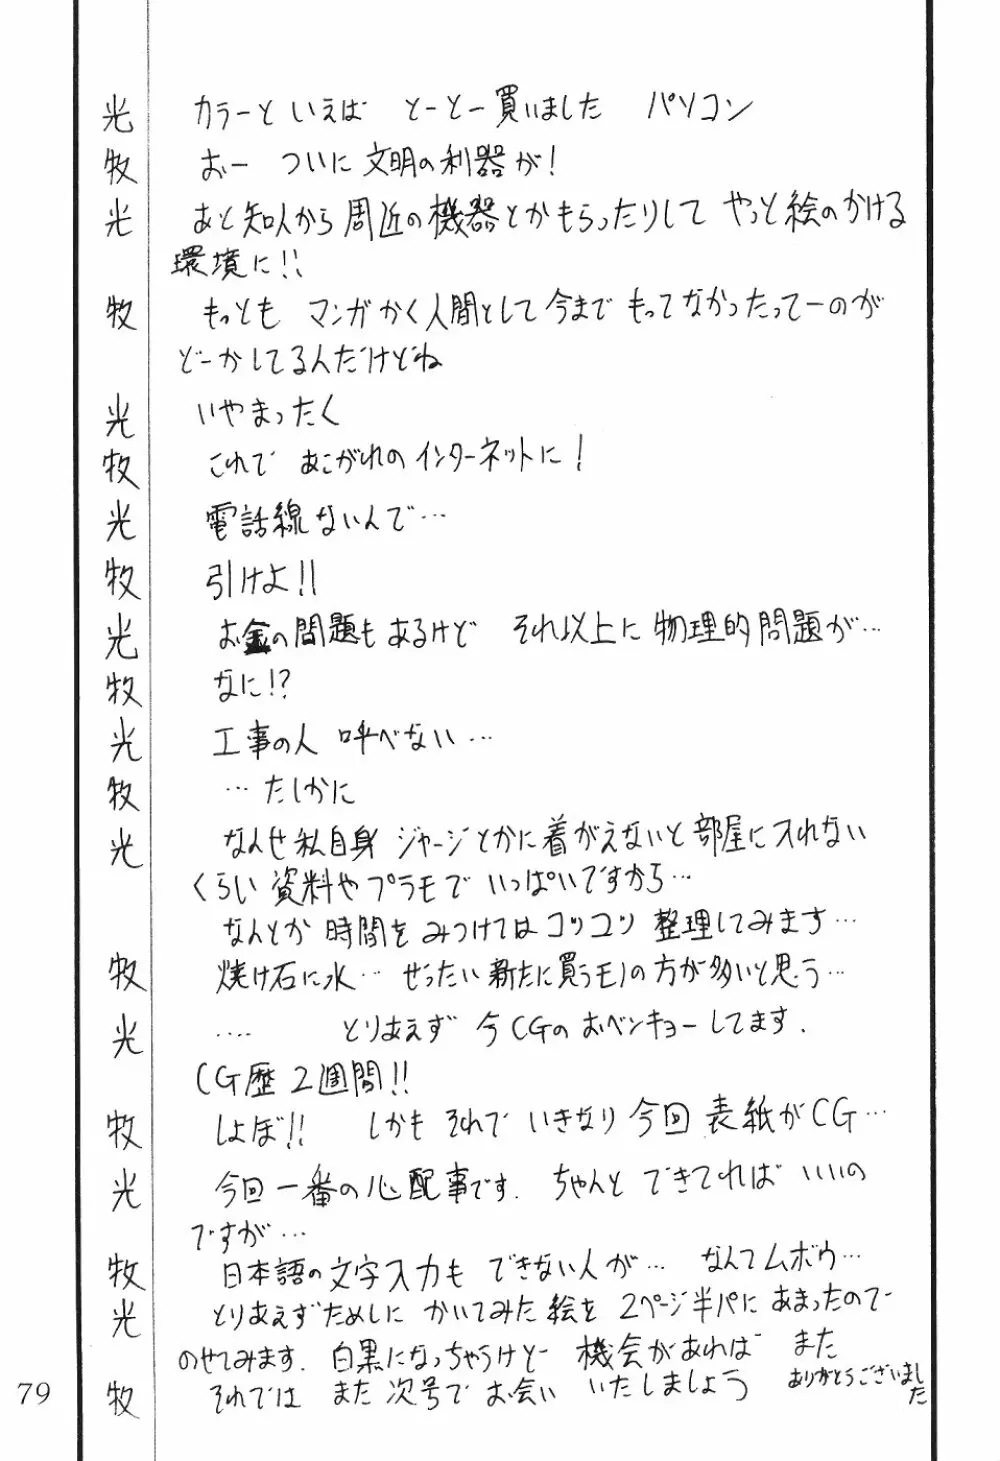 光 カラーと いえば とーとー買いました パソコン
牧 おー ついに 文明の利器が!
光 あと知人から周辺の機器とかもらったりして やっと絵のかける
環境に!!
牧 もっとも マンガかく人間として今まで もってなかったってーのが
どーかしてるんだけどね
光 いやまったく
牧 これで あこがれのインターネットに!
光 電話線ないんで…
牧 引けよ!!
光 お金の問題もあるけど それ以上に物理的問題が…
牧 なに!?
光 工事の人 呼べない…
牧 …たしかに
光 なんせ私自身 ジャージとかに着がえないと部屋に入れない
くらい 資料やプラモで いっぱいですから…
なんとか 時間を みつけてはコツコツ 整理してみます…
牧 焼け石に水… ぜったい新たに買うモノの方が多いと思う…
光 …. とりあえず 今CGのおベンキョーしてます.
CG歴2週間!!
牧 しょぼ!! しかも それで いきなり 今回 表紙がCG…
光 今回一番の心配事です. ちゃんと できてれば いいの
ですが…
牧 日本語の文字入力も できない人が… なんてムボウ…
光 とりあえずためしに かいてみた絵を 2ページ半パにあまったので
のせてみます. 白黒になっちゃうけど 機会があれば また
牧 それでは また 次号で お会い いたしましょう ありがとうございまし
た
79